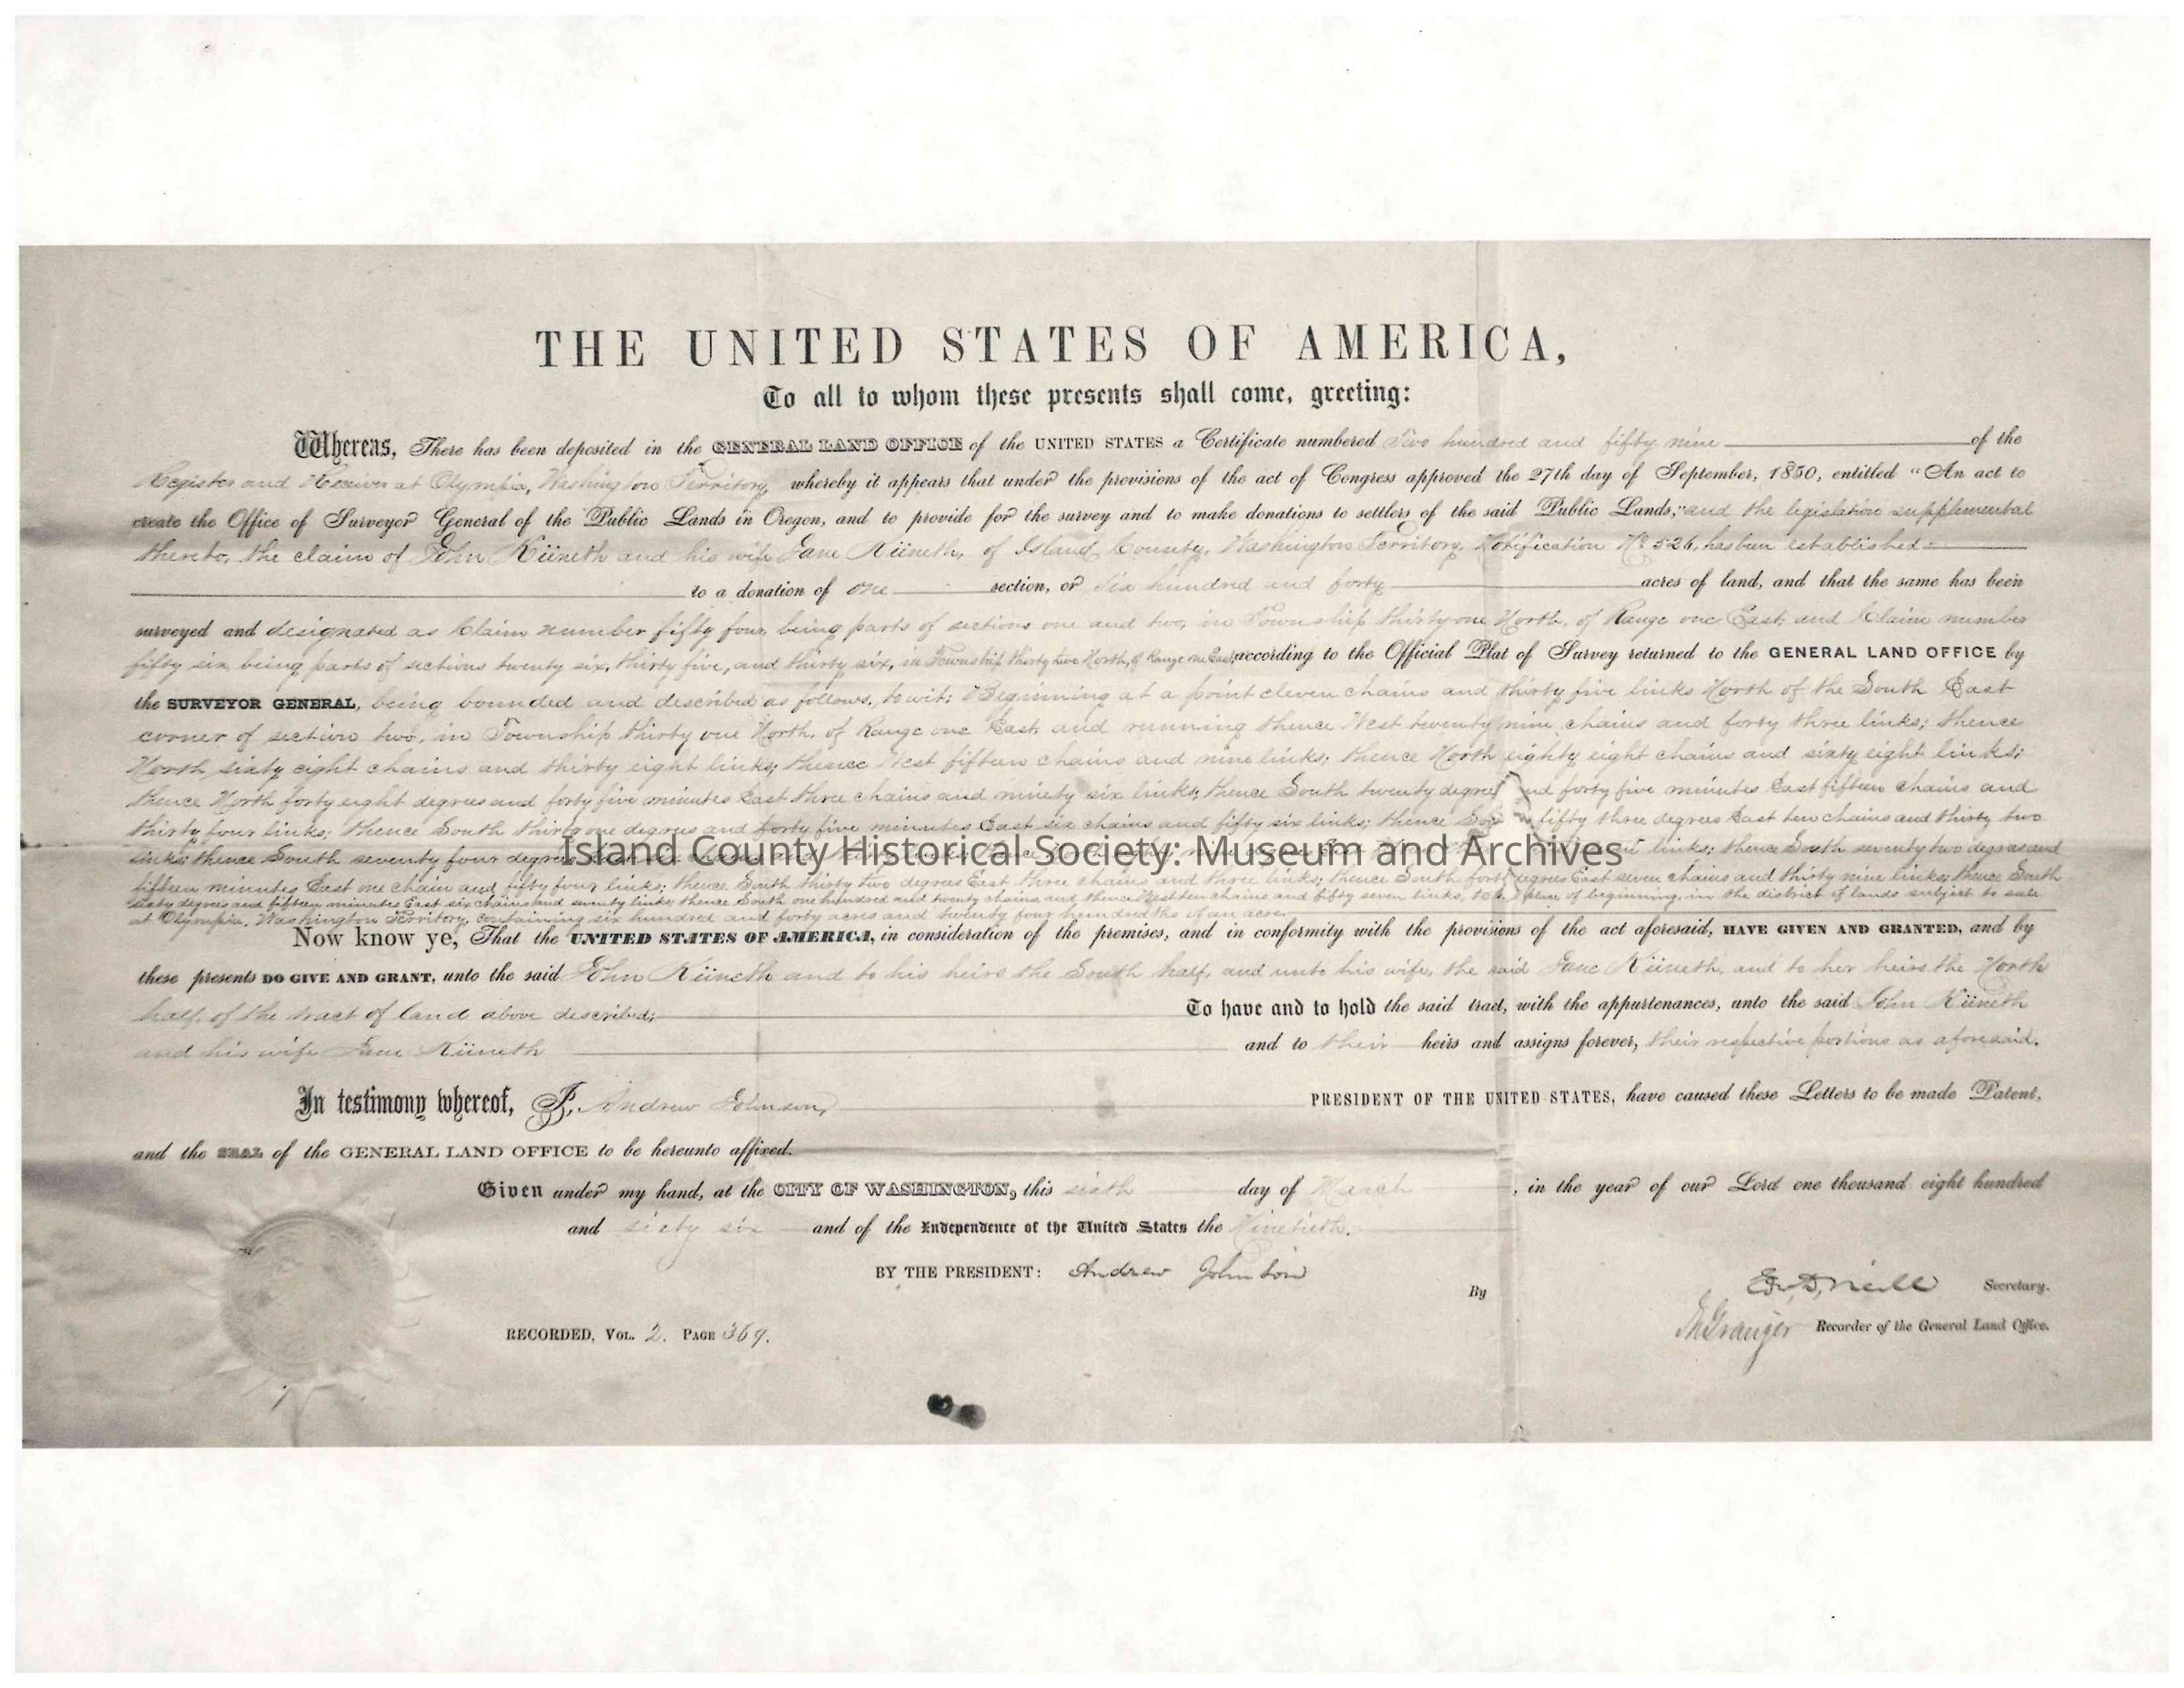 THE UNITED STATES OF AMERICA,
To all to whom these presents shall come, greeting:
Whereas, There has been deposited in the GENERAL LAND OFFICE of the UNITED STATES a Certificate numbered Two hundred and fifty nine of the
Register and Receiver at Olympia, Washington Territory, whereby it appears that under the provisions of the act of Congress approved the 27th day of September, 1850, entitled "An act to
create the Office of Surveyor General of the Public Lands in Oregon, and to provide for the survey and to make donations to settlers of the said Public Lands," and the legislation supplemental
thereto, the claim of John Küineth and his wife Jane Küineth, of Island County, Washington Territory, Notification No 526, has been established
to a donation of one section, or six hundred and forty acres of land, and that the same has been
surveyed and designated as Claim number fifty four, being parts of sections one and two, in Township thirty one North, of Range one East, and Claim number
fifty six being parts of sections twenty six, thirty five, and thirty six, in Township thirty two North, of Range one East, according to the Official Plat of Survey returned to the GENERAL LAND OFFICE by
the SURVEYOR GENERAL, being bounded and described as follows, to wit: Beginning at a point eleven chains and thirty five links North of the South East
corner of section two, in Township thirty one North, of Range one East, and running thence West twenty nine chains and forty three links; thence
North sixty eight chains and thirty eight links; thence West fifteen chains and nine links; thence North eighty eight chains and sixty eight links;
thence North forty eight degrees and forty five minutes East three chains and ninety six links; thence South twenty degrees and forty five minutes East fifteen chains and
thirty four links; thence South thirty one degrees and forty five minutes East six chains and fifty six links; thence South fifty three degrees East ten chains and thirty two
links; thence South seventy four degrees links; thence South seventy two degrees and
Island County Historical Society: Museum and Archives
fifteen minutes East one chain and fifty four links; thence South thirty two degrees East three chains and three links; thence South forty degrees East seven chains and thirty nine links; thence South
sixty degrees and fifteen minutes East six chains and seventy links; thence South one hundred and twenty chains and thence West ten chains and fifty seven links, to place of beginning, in the district of lands subject to sale
at Olympia, Washington Territory, containing six hundred and forty acres and twenty four hundredths of an acre.
Now know ye, That the UNITED STATES OF AMERICA, in consideration of the premises, and in conformity with the provisions of the act aforesaid, HAVE GIVEN AND GRANTED, and by
these presents DO GIVE AND GRANT, unto the said John Küineth and to his heirs the South half, and unto his wife, the said Jane Küineth, and to her heirs the North
half, of the tract of land above described; To have and to hold the said tract, with the appurtenances, unto the said John Küineth
and his wife Jane Küineth and to their heirs and assigns forever, their respective portions as aforesaid.
In testimony whereof, I, Andrew Johnson, PRESIDENT OF THE UNITED STATES, have caused these Letters to be made Patent,
and the SEAL of the GENERAL LAND OFFICE to be hereunto affixed.
Given under my hand, at the CITY OF WASHINGTON, this sixth day of March, in the year of our Lord one thousand eight hundred
and sixty six and of the Independence of the United States the Ninetieth.
BY THE PRESIDENT: Andrew Johnson
By Ed. D. Neill Secretary.
RECORDED, VOL. 2. PAGE 369. Granger Recorder of the General Land Office.